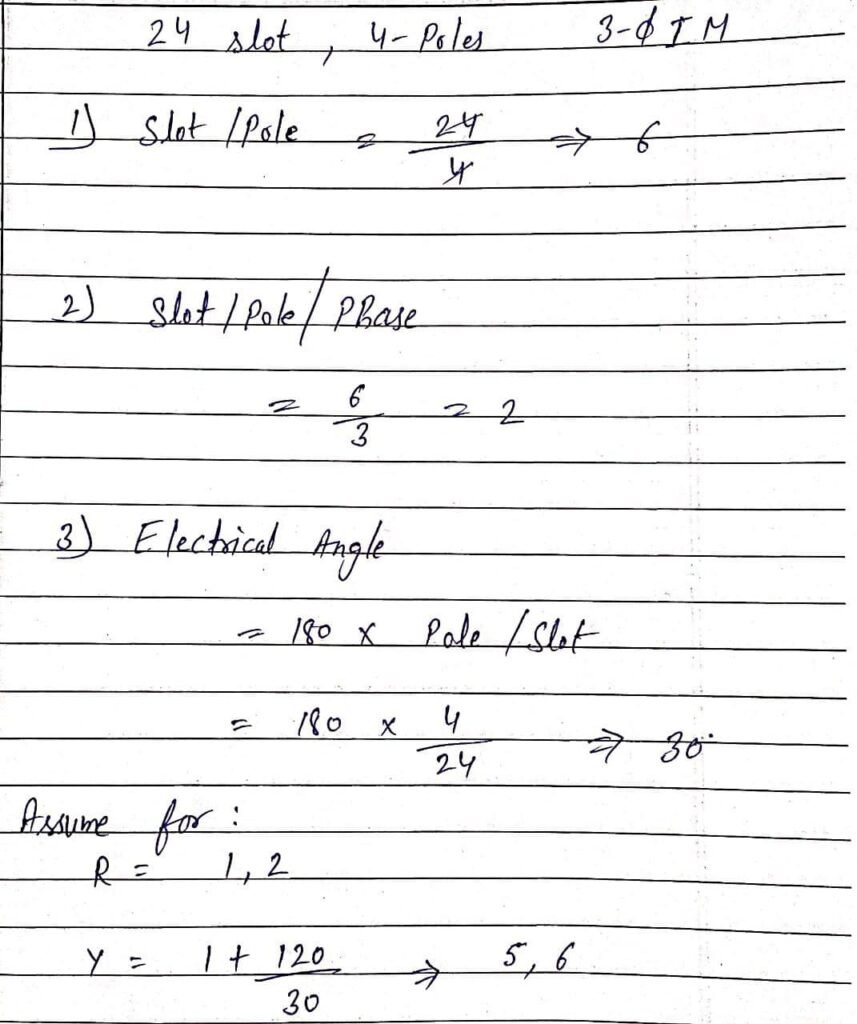 24 slot , 4-Poles 3-ϕ I M
1) Slot / Pole = 24/4 ⇒ 6
2) Slot / Pole / Phase
= 6/3 = 2
3) Electrical Angle
= 180 x Pole / Slot
= 180 x 4/24 ⇒ 30°
Assume for :
R = 1, 2
Y = 1 + 120/30 ⇒ 5, 6